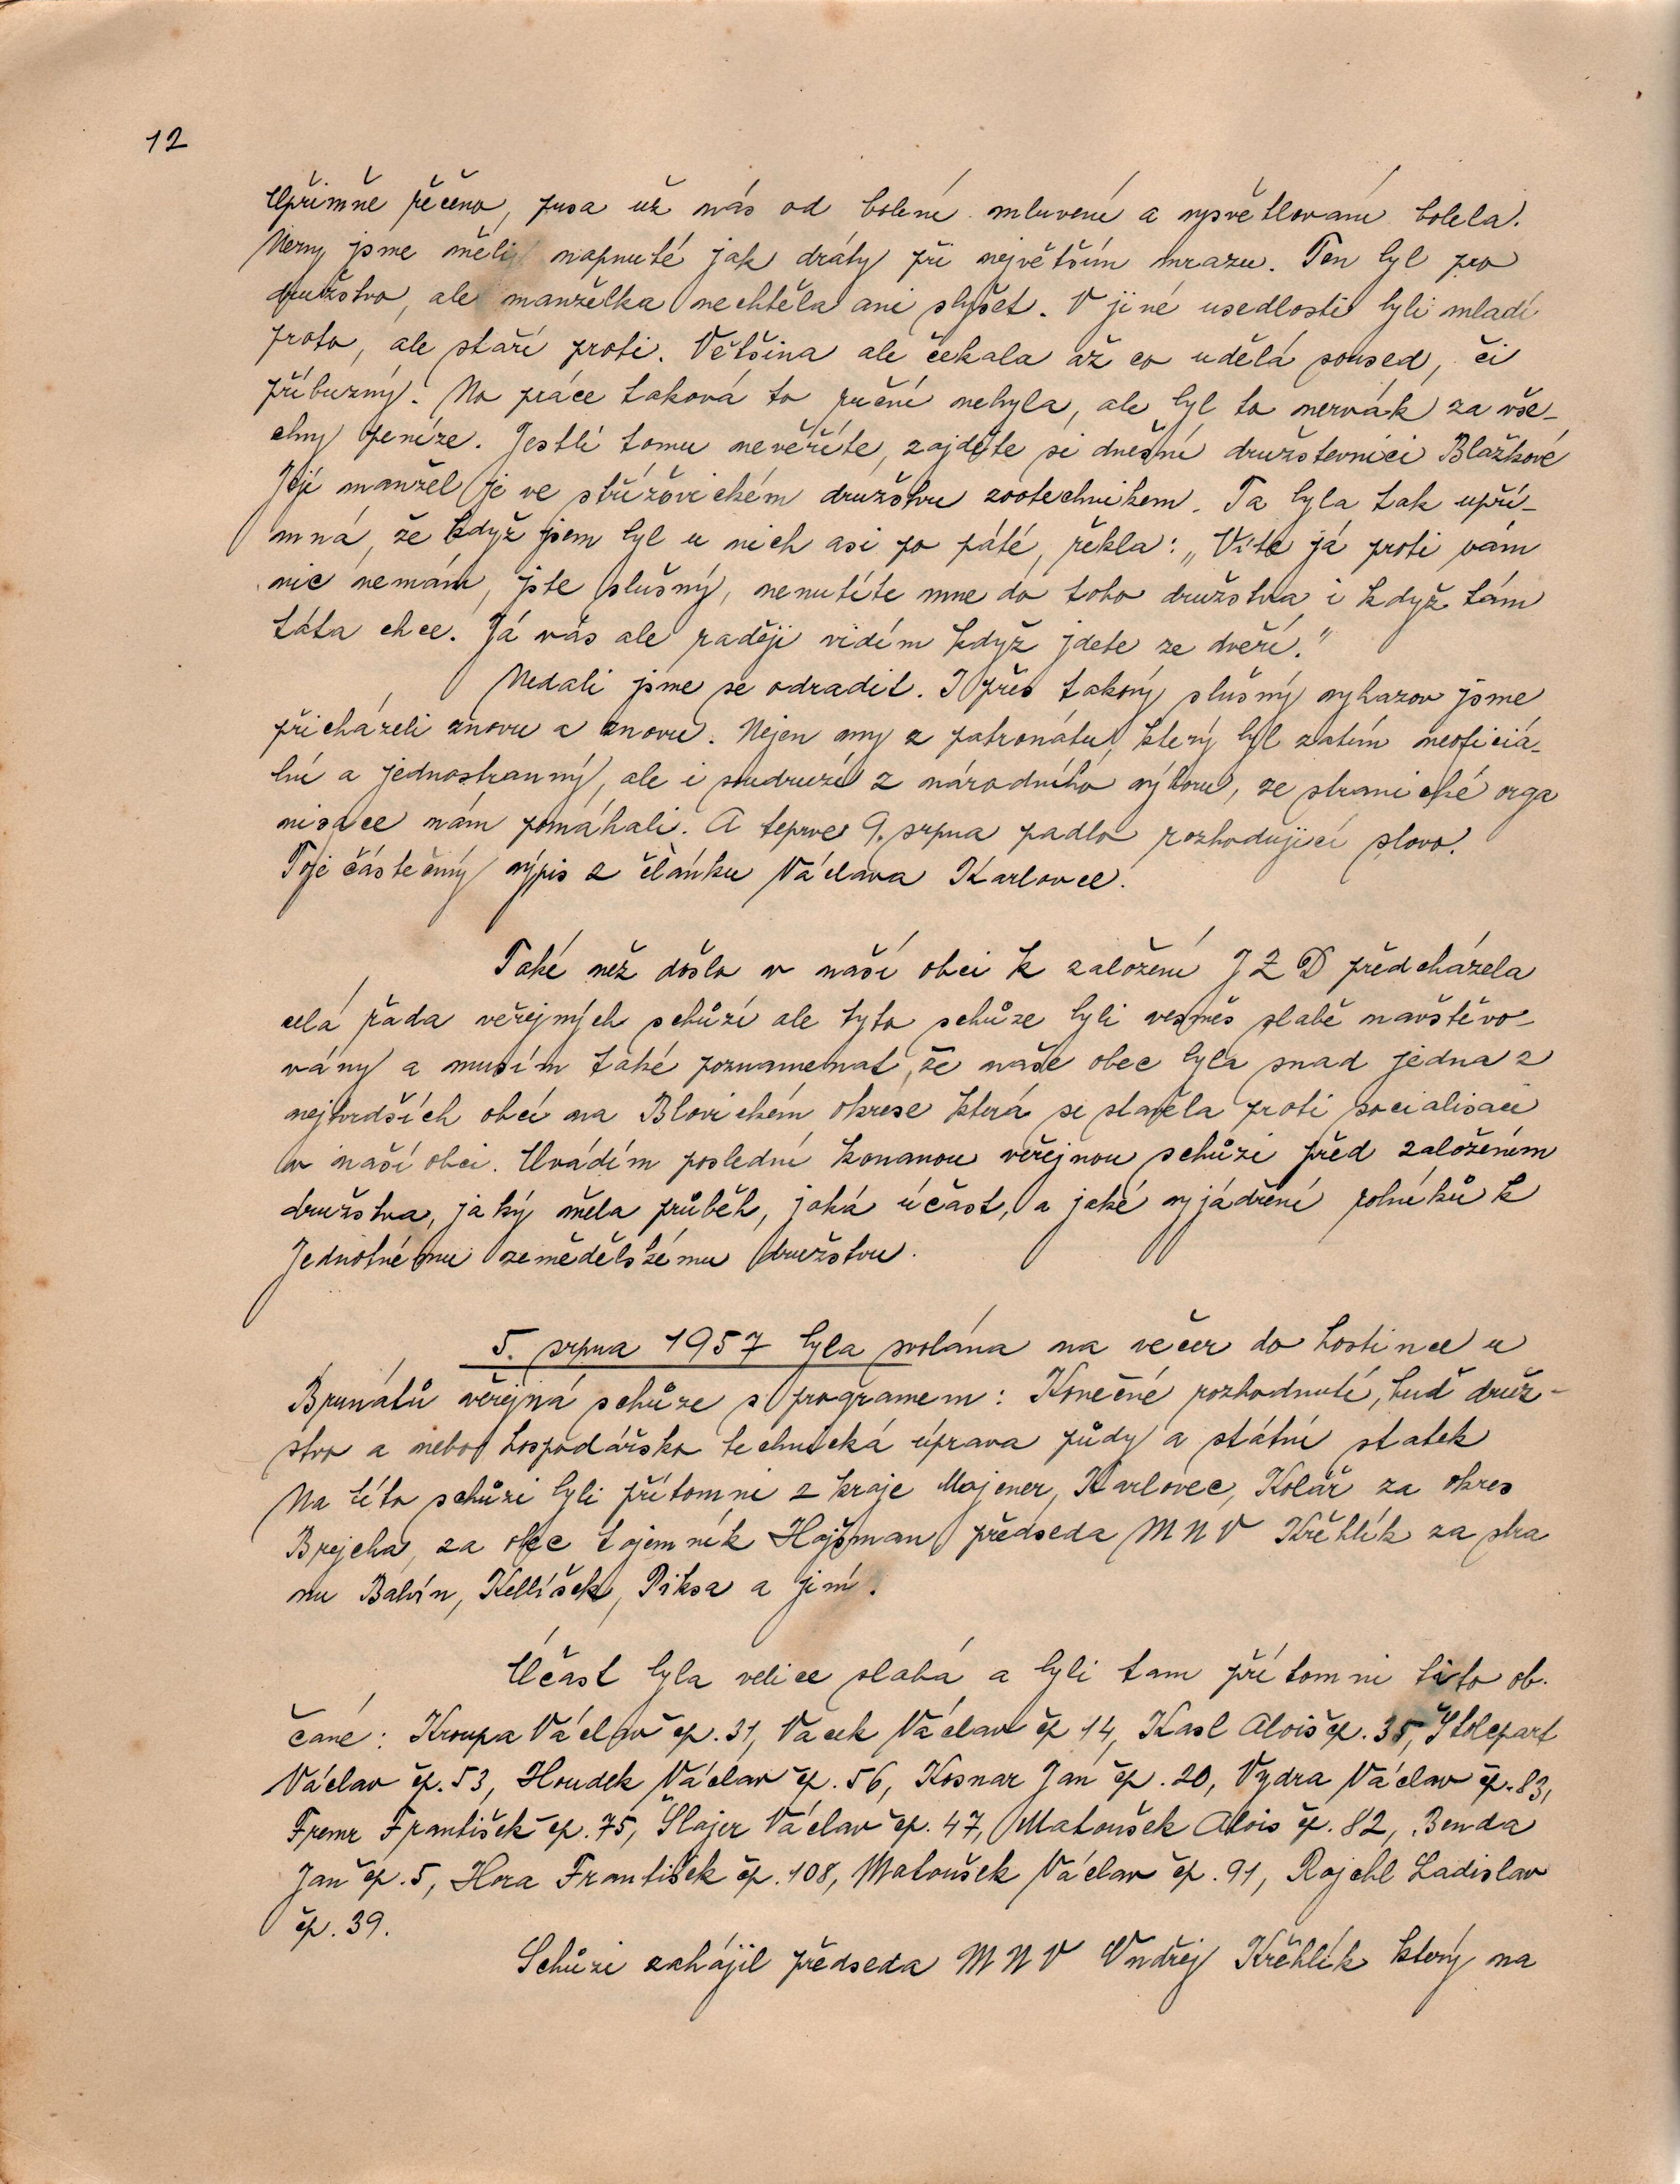 12
Upřimně řečeno, pusa už nás od bolení mluvení a vysvětlovaní bolela.
Nervy jsme měli napnuté jak dráty při největším mrazu. Ten byl pro
družstvo, ale manželka nechtěla ani slyšet. V jiné usedlosti byli mladí
proto, ale staří proti. Většina ale čekala až co udělá soused, či
příbuzný. No práce taková to ruční nebyla, ale byl to nervák za vše-
chny peníze. Jestli tomu nevěříte, zajděte si dnešní družstevnici Blažkové
Její manžel je ve střížovickém družstvu zootechnikem. Ta byla tak upří-
mná, že když jsem byl u nich asi po páté, řekla: „Víte já proti vám
nic nemám, jste slušný, nenutíte mne do toho družstva i když tám
táta chce. Já vás ale raději vidím když jdete ze dveří."
Nedali jsme se odradit. I přes takový slušný vyhazov jsme
přicházeli znovu a znovu. Nejen my z patronátu, který byl zatím neoficiá-
lní a jednostranný, ale i soudruzi z národního výboru, ze stranické orga
nisace nám pomáhali. A teprve 9. srpna padlo rozhodujicí slovo.
Toje částečný výpis z článku Václava Karlovce.
Také než došlo v naší obci k založení JZD předcházela
celá řada veřejných schůzí ale tyto schůze byli vesměs slabě navštěvo-
vány a musím také poznamenat, že naše obec byla snad jedna z
nejtvrdších obcí na Blovickém okrese která se stavěla proti socialisaci
v naší obci. Uvádím poslední konanou veřejnou schůzi před založením
družstva, jaký měla průběh, jaká účast, a jaké vyjádření rolníků k
Jednotnému zemědělskému družstvu.
5. srpna 1957 byla svolána na večer do hostince u
Brunátů veřejná schůze s programem: Konečné rozhodnutí, buď druž-
stvo a nebo hospodářsko technická úprava půdy a státní statek
Na této schůzi byli přítomni z kraje Majener, Karlovec, Kolář za okres
Brejcha, za obec tajemník Hajšman předseda MNV Křehlík za stra
nu Balvín, Kellíšek, Piksa a jiní.
Účast byla velice slabá a byli tam přítomni tito ob-
čané: Kroupa Václav čp. 31, Vacek Václav čp 14, Kasl Alois čp. 35, Štolcpart
Václav čp. 53, Houdek Václav čp. 56, Kosnar Jan čp. 20, Vydra Václav čp. 83,
Fremr František čp. 75, Šlajer Václav čp. 47, Matoušek Alois čp. 82, Benda
Jan čp. 5, Hora František čp. 108, Matoušek Václav čp. 91, Rajchl Ladislav
čp. 39.
Schůzi zahájil předseda MNV Ondřej Křehlík který na